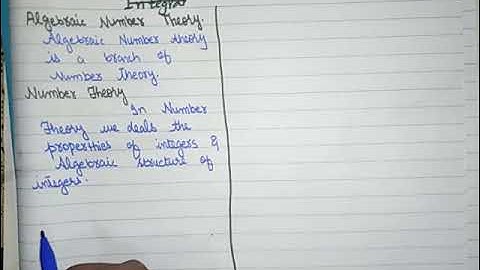 Integral
Algebraic Number Theory.
Algebraic Number theory
is a branch of
Number Theory.
Number Theory
In Number
Theory we deals the
properthies of integers &
Algebraic structure of
integers.